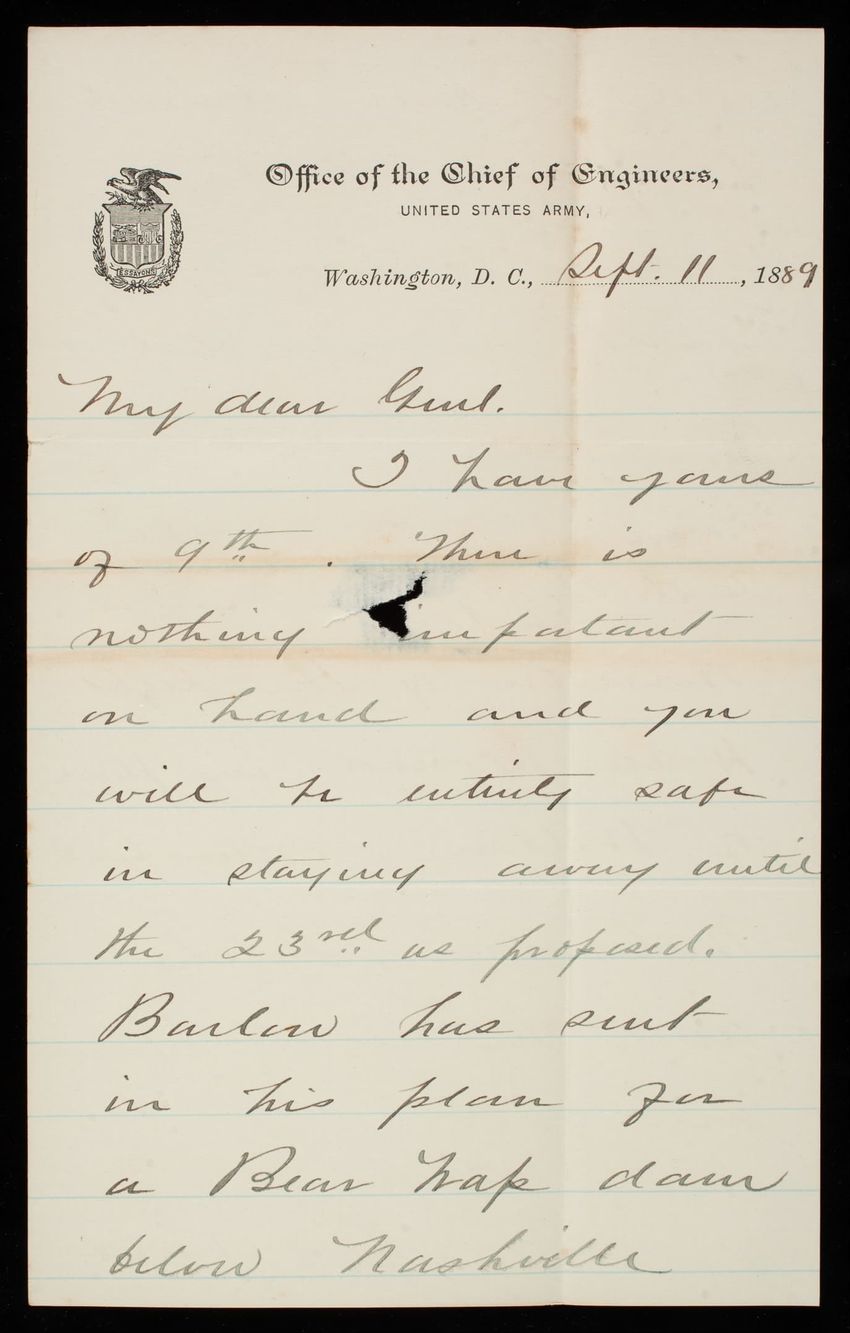 Office of the Chief of Engineers,
UNITED STATES ARMY,
ESSAYONS
Washington, D. C., Sept. 11, 1889
My dear Genl.
I have yours
of 9th. There is
nothing important
on hand and you
will be entirely safe
in staying away until
the 23rd as proposed.
Barlow has sent
in his plan for
a Bear trap dam
below Nashville